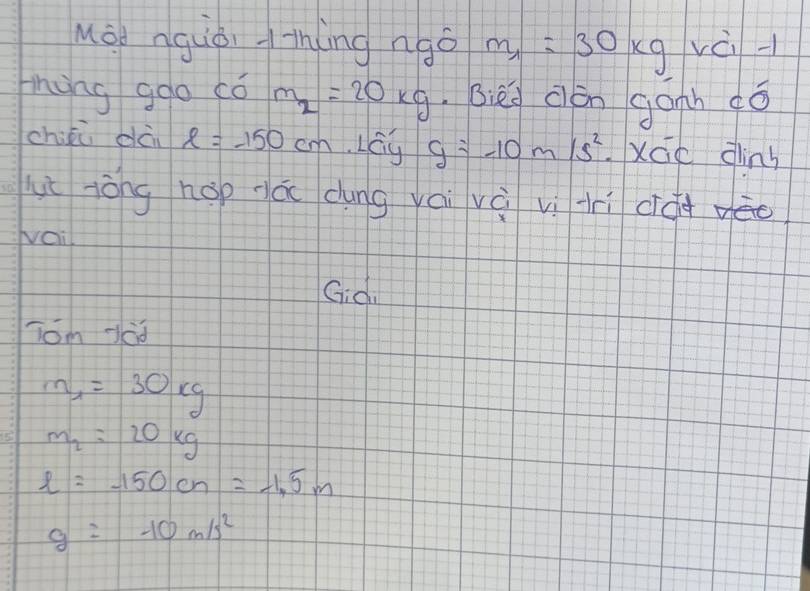 Một người 1 thùng ngô m₁ = 30 kg và 1
thùng gạo có m₂ = 20 kg. Biết đòn gánh có
chiều dài l = 150 cm. Lấy g = 10 m/s². Xác định
lực tổng hợp tác dụng vai và vị trí đặt vào
vai.
Giải
Tóm tắt
m₁ = 30 kg
m₂ = 20 kg
l = 150 cm = 1,5 m
g = 10 m/s²